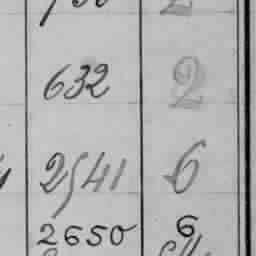 632 2
2541 6
2650 6